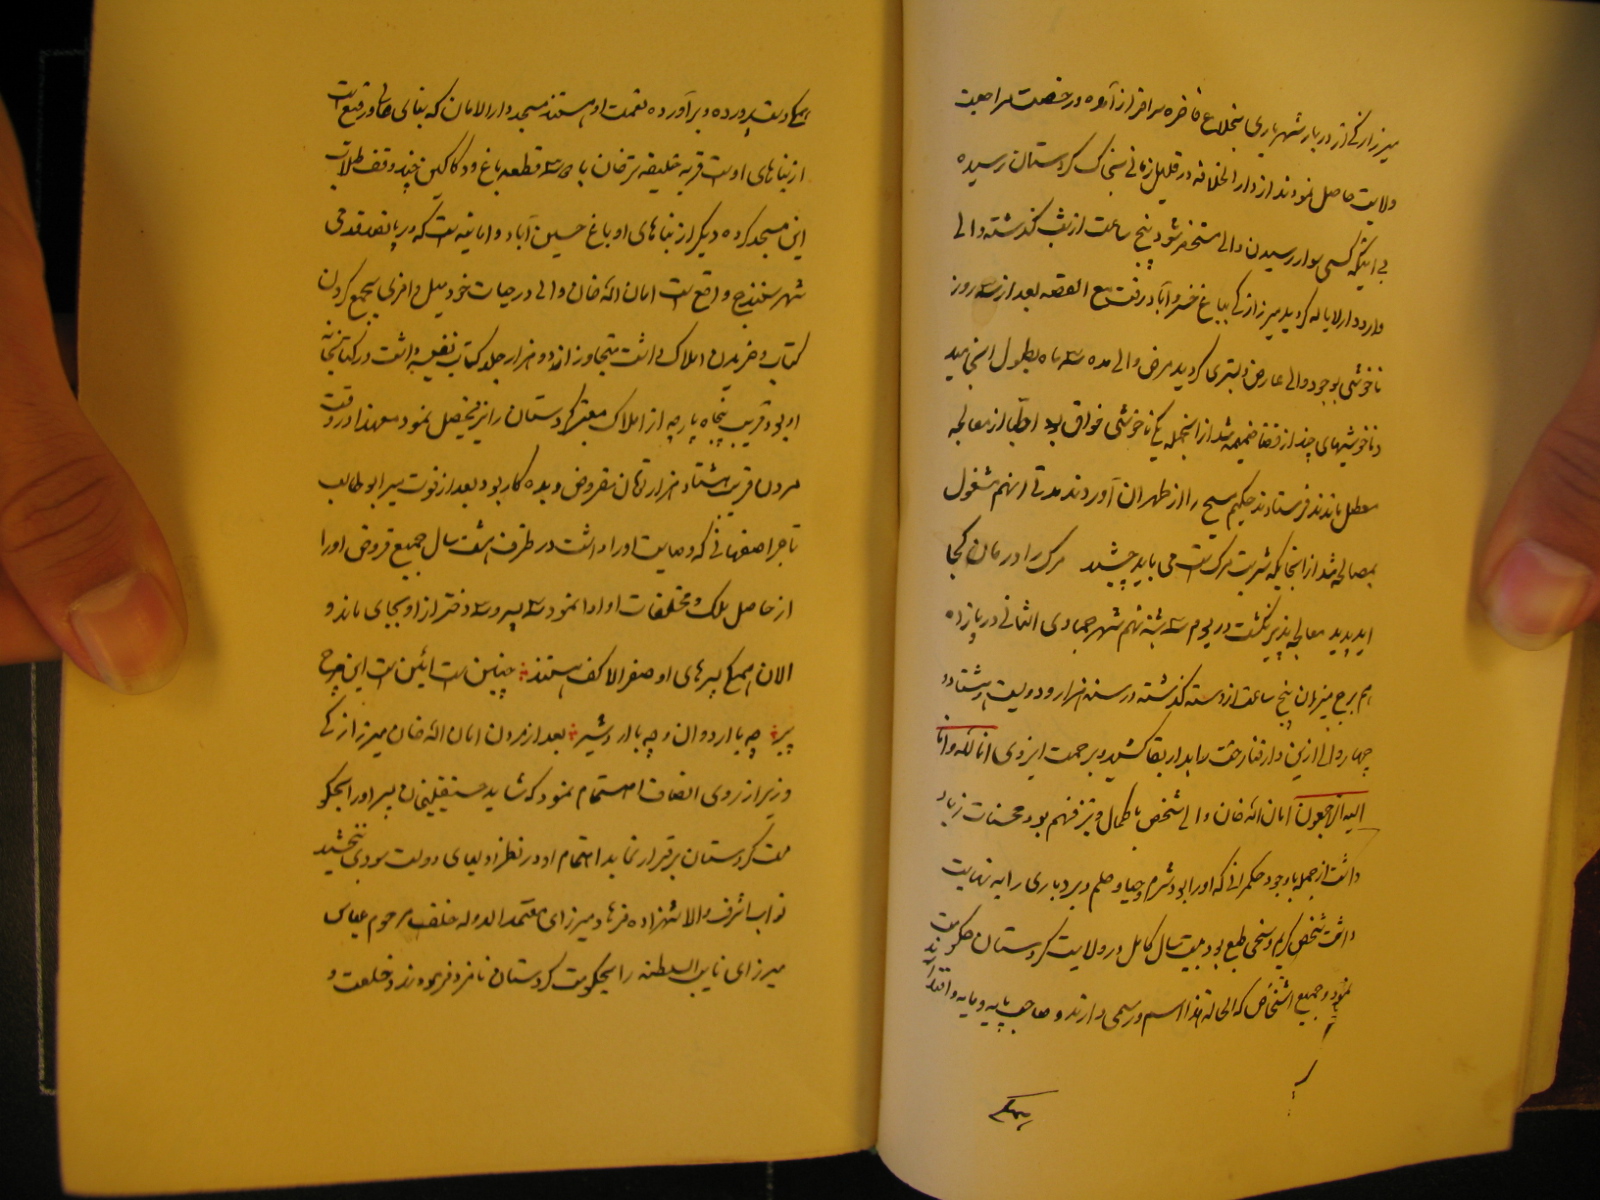 میرزا زکی از دربار شهریاری بخلاع فاخره سرافراز آمده و رخصت مراجعت
ولایت حاصل نمودند از دار الخلافه در قلیل زمانی بخاک کردستان رسیده
بی اینکه کسی بوا رسیدن والی مستحضر شود پنج ساعت از شب گذشته والی
وارد دار الایاله گردید میرزا زکی بباغ خسروآباد رفت مع القصه بعد از سه روز
ناخوشی بوجود والی عارض و بستری گردید مرض والی مده سه ماه بطول انجامید
و ناخوشیهای چند از قضا ضمیمه شد از انجمله یکی ناخوشی خوانق بود اطبا از معالجه
معطل ماندند فرستادند حکیم مسیح را از طهران آوردند مدتی او نهم مشغول
بمصالح شد از انجائیکه شربت مرگ است می باید چشید مرگ را درمان کجا
اید پدید معالجه پذیر نگشت در یوم سه شنبه نهم شهر جمادی الثانی در پازده
هم برج میزان پنج ساعت از دسته گذشته در سنه هزار و دویست و هشتاد و
چهار والی ازین دار فنا رخت را بدار بقا کشید و برحمت ایزدی انا لله وانا
الیه راجعون امان الله خان والی شخص با کمال و تیز فهم بود محسنات زیاد
داشت از جمله با وجود حکمرانی که او را بود شرم و حیا و حلم و بردباری را به نهایت
داشت شخص کریم و سخی طبع بود بیست سال کامل در ولایت کردستان حکومت
نمود و جمیع اشخاص که الحاله هذا اسم و رسمی دارند و صاحب پایه و مایه و اقتدارند
همگی
همگی دست پرورده و برآورده نعمت او هستند مسجد دار الامان که بنای عالی و رفیع است
از بناهای اوست قریه خلیفه ترخان با سه قطعه باغ و دکاکین چند وقف طلاب
این مسجد کرده دیگر از بناهای او باغ حسین آباد و امانیه است که در پانصد قدمی
شهر سنندج واقع است امان الله خان والی در حیات خود میل وافری بجمع کردن
کتاب و خریدن املاک داشت متجاوز از دو هزار جلد کتاب نفیسه داشت در کتابخانه
او بود قریب پنجاه پارچه از املاک معتبر کردستان را نیز تحصیل نمود معهذا در وقت
مردن قریب هشتاد هزار تومان مقروض و بده کار بود بعد از فوت میر ابو طالب
تاجر اصفهانی که وصایت او را داشت در ظرف هشت سال جمیع قروض او را
از حاصل ملک و مخلفات او ادا نمود سه پسر و سه دختر از او بجای ماند و
الان همگی پسرهای او صفر الاکف هستند چنین است ائین است این چرخ
پیر چه با اردوان و چه با اردشیر بعد از مردن امان الله خان میرزا زکی
وزیر از روی انصاف اهتمام نمود که شاید حسنقلیخان پسر او را بحکو
مت کردستان برقرار نماید اهتمام او در نظر اولیای دولت سودی نبخشید
نواب اشرف والا شهزاده فرهاد میرزای معتمد الدوله خلف مرحوم عباس
میرزای نایب السلطنه را بحکومت کردستان نامزد فرمودند و خلعت و